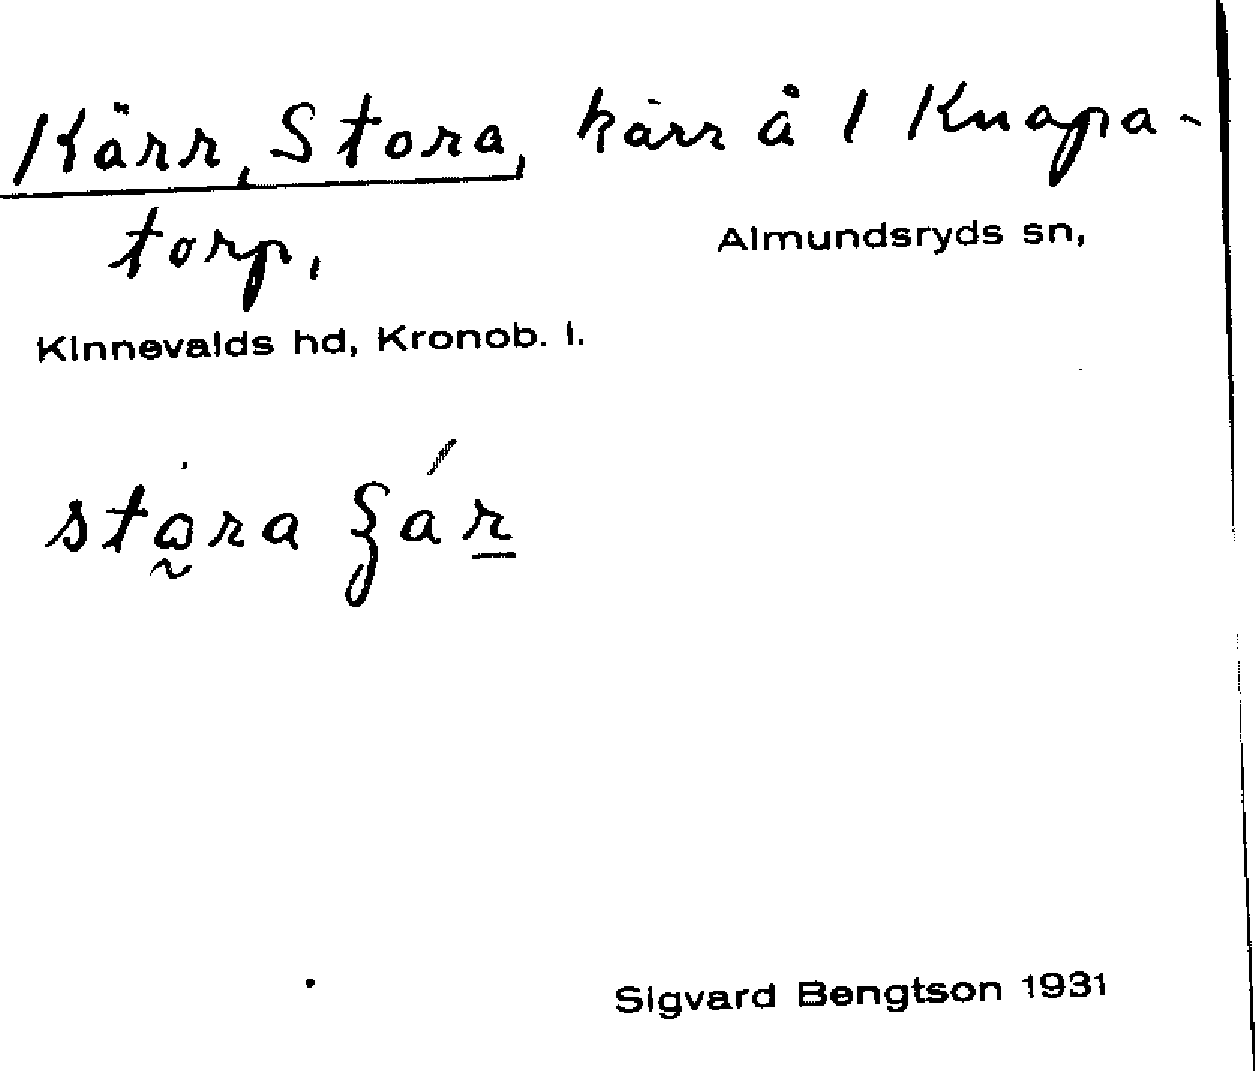 Kärr, Stora, kärr å 1 Knapa-
torp,
Almundsryds sn,
Kinnevalds hd, Kronob. l.
stora
Sigvard Bengtson 1931